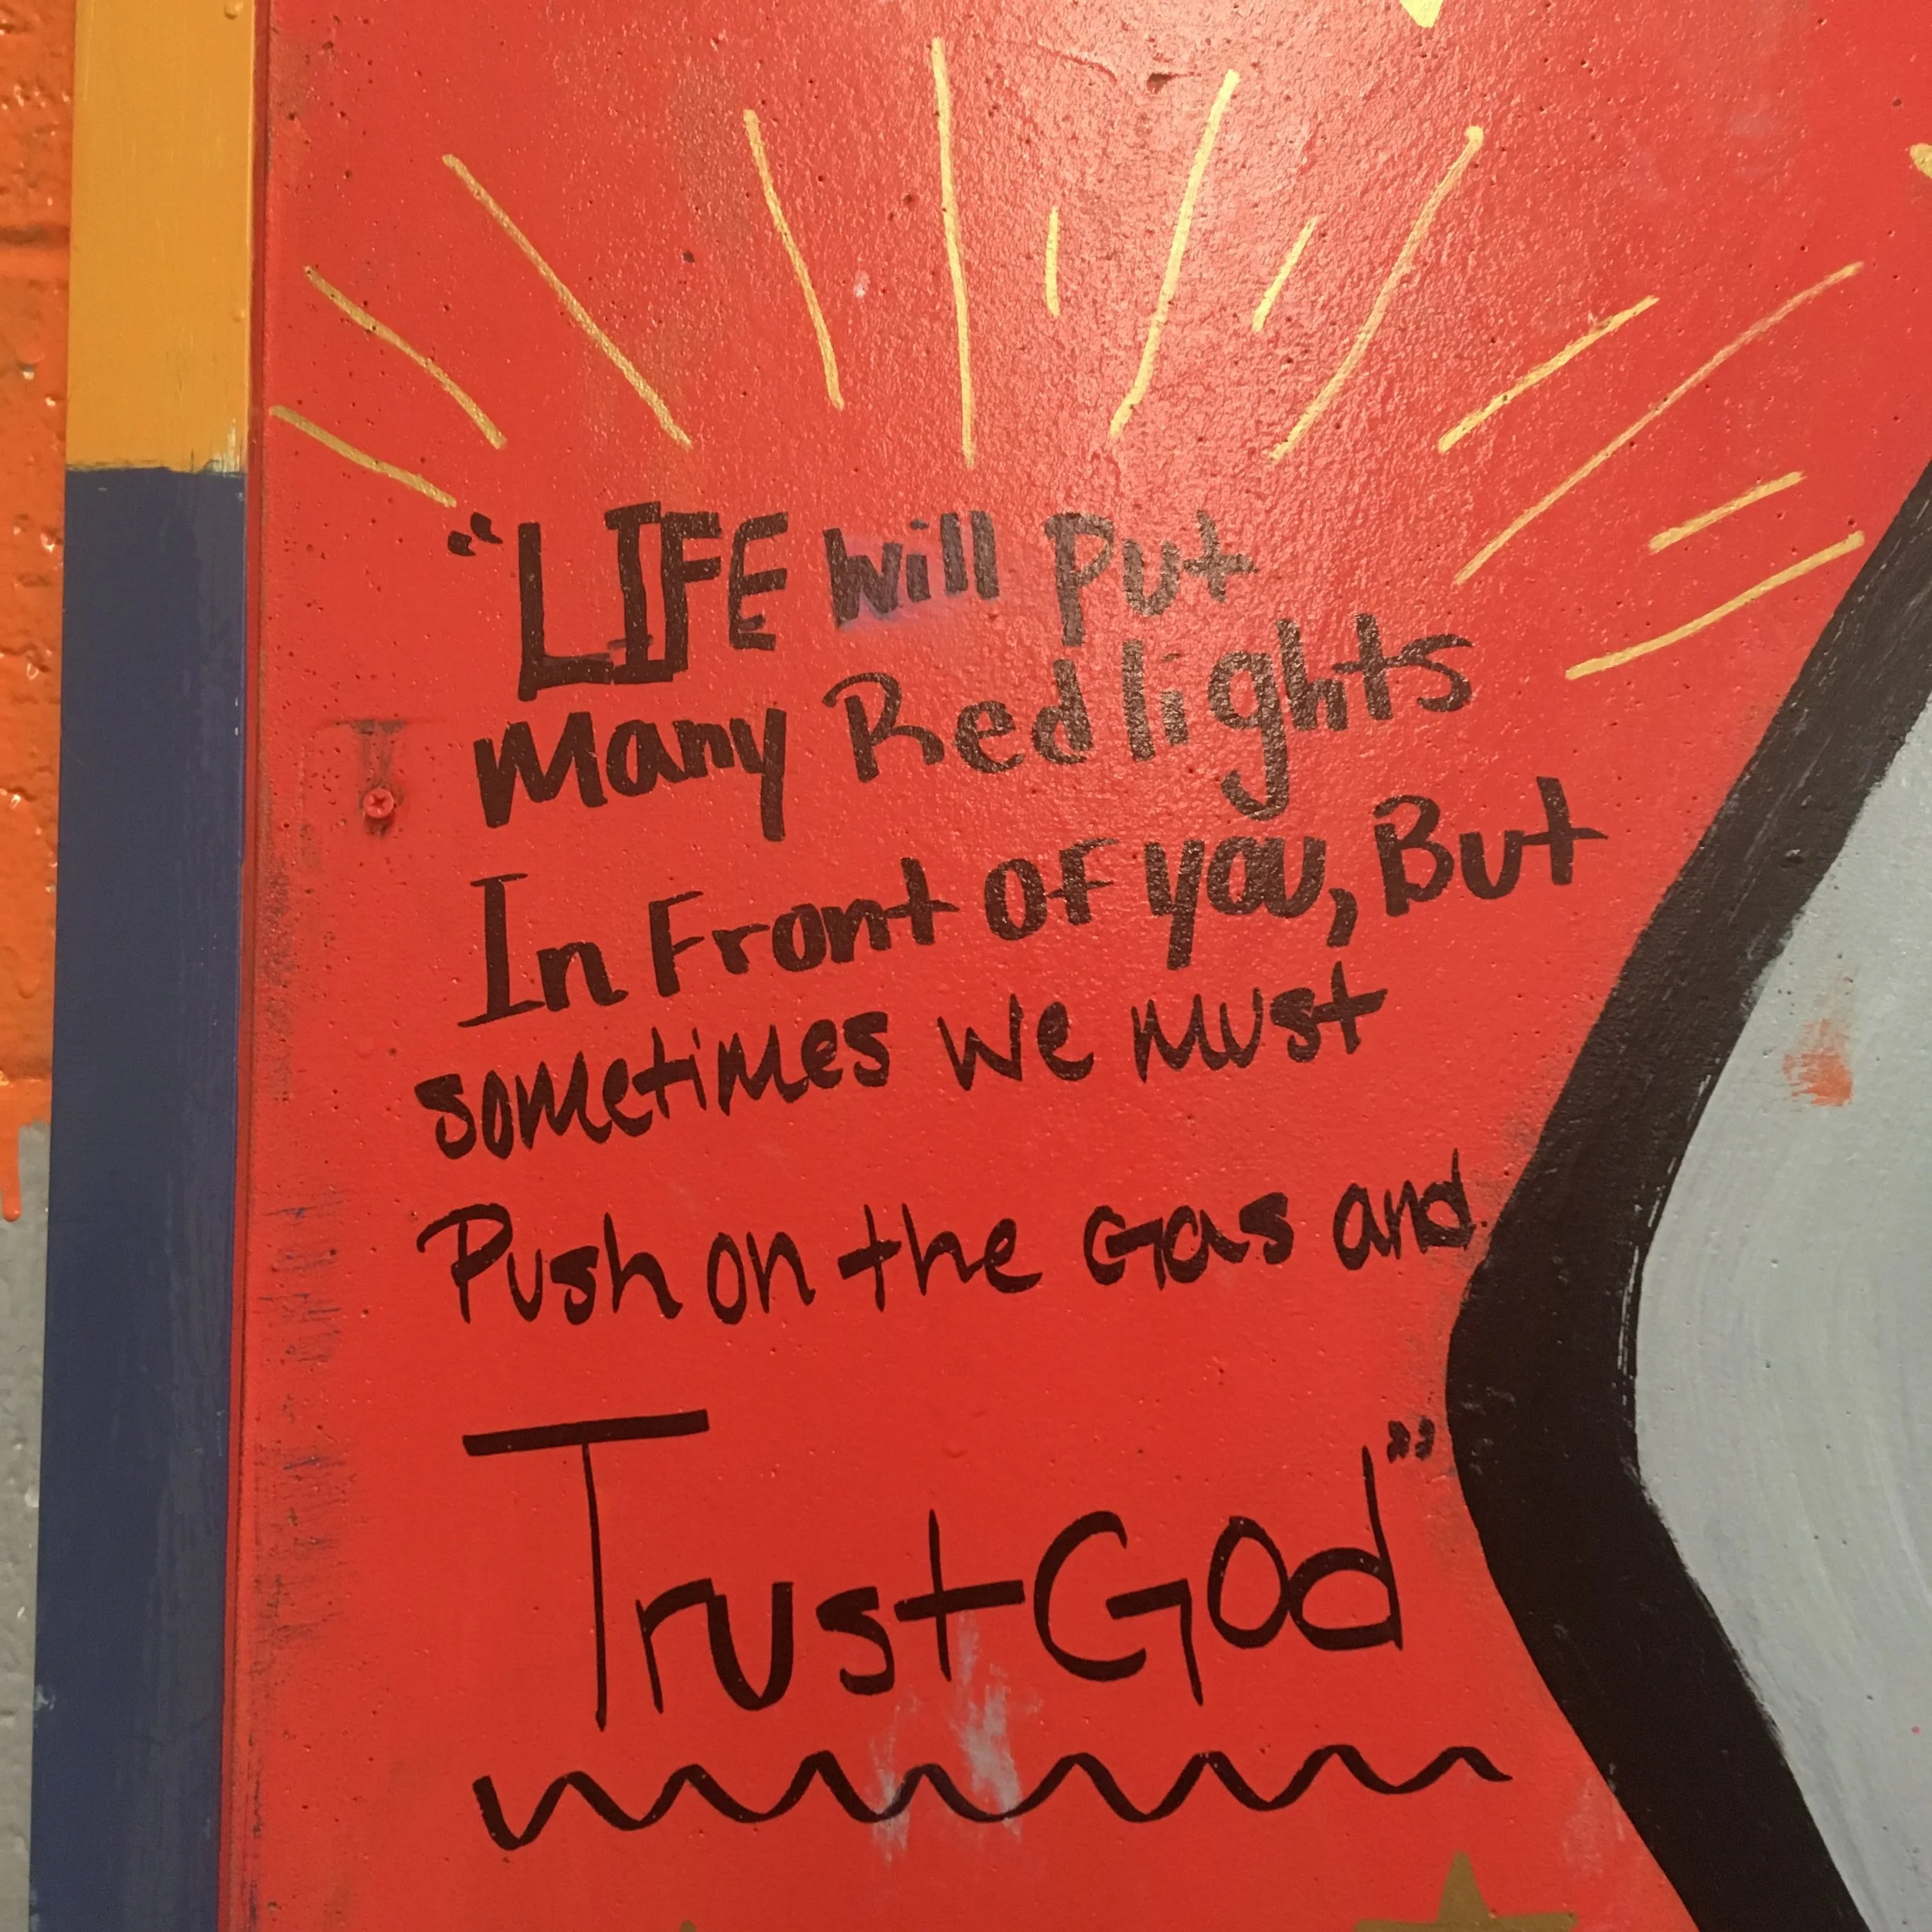 "LIFE will Put
Many Red lights
In Front of you, But
sometimes we must
Push on the Gas and
Trust God"